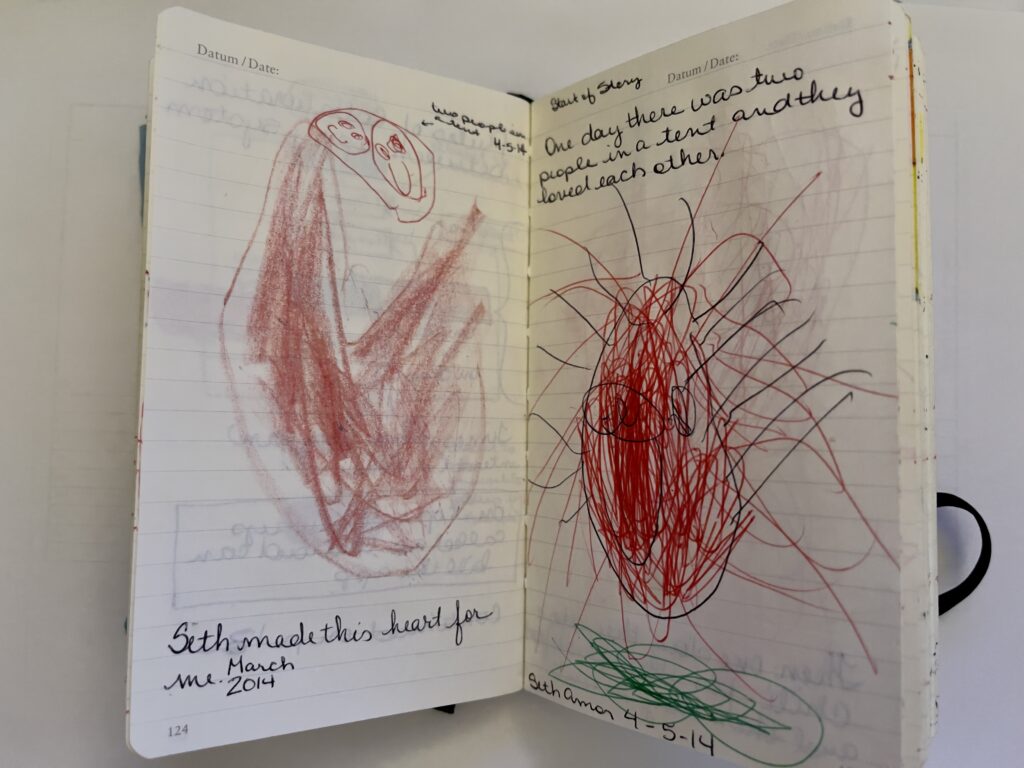 Datum / Date:
two people
4-5-14
Seth made this heart for
me. March
2014
124
Start of Story
Datum / Date:
One day there was two
people in a tent and they
loved each other.
Seth Amos 4-5-14